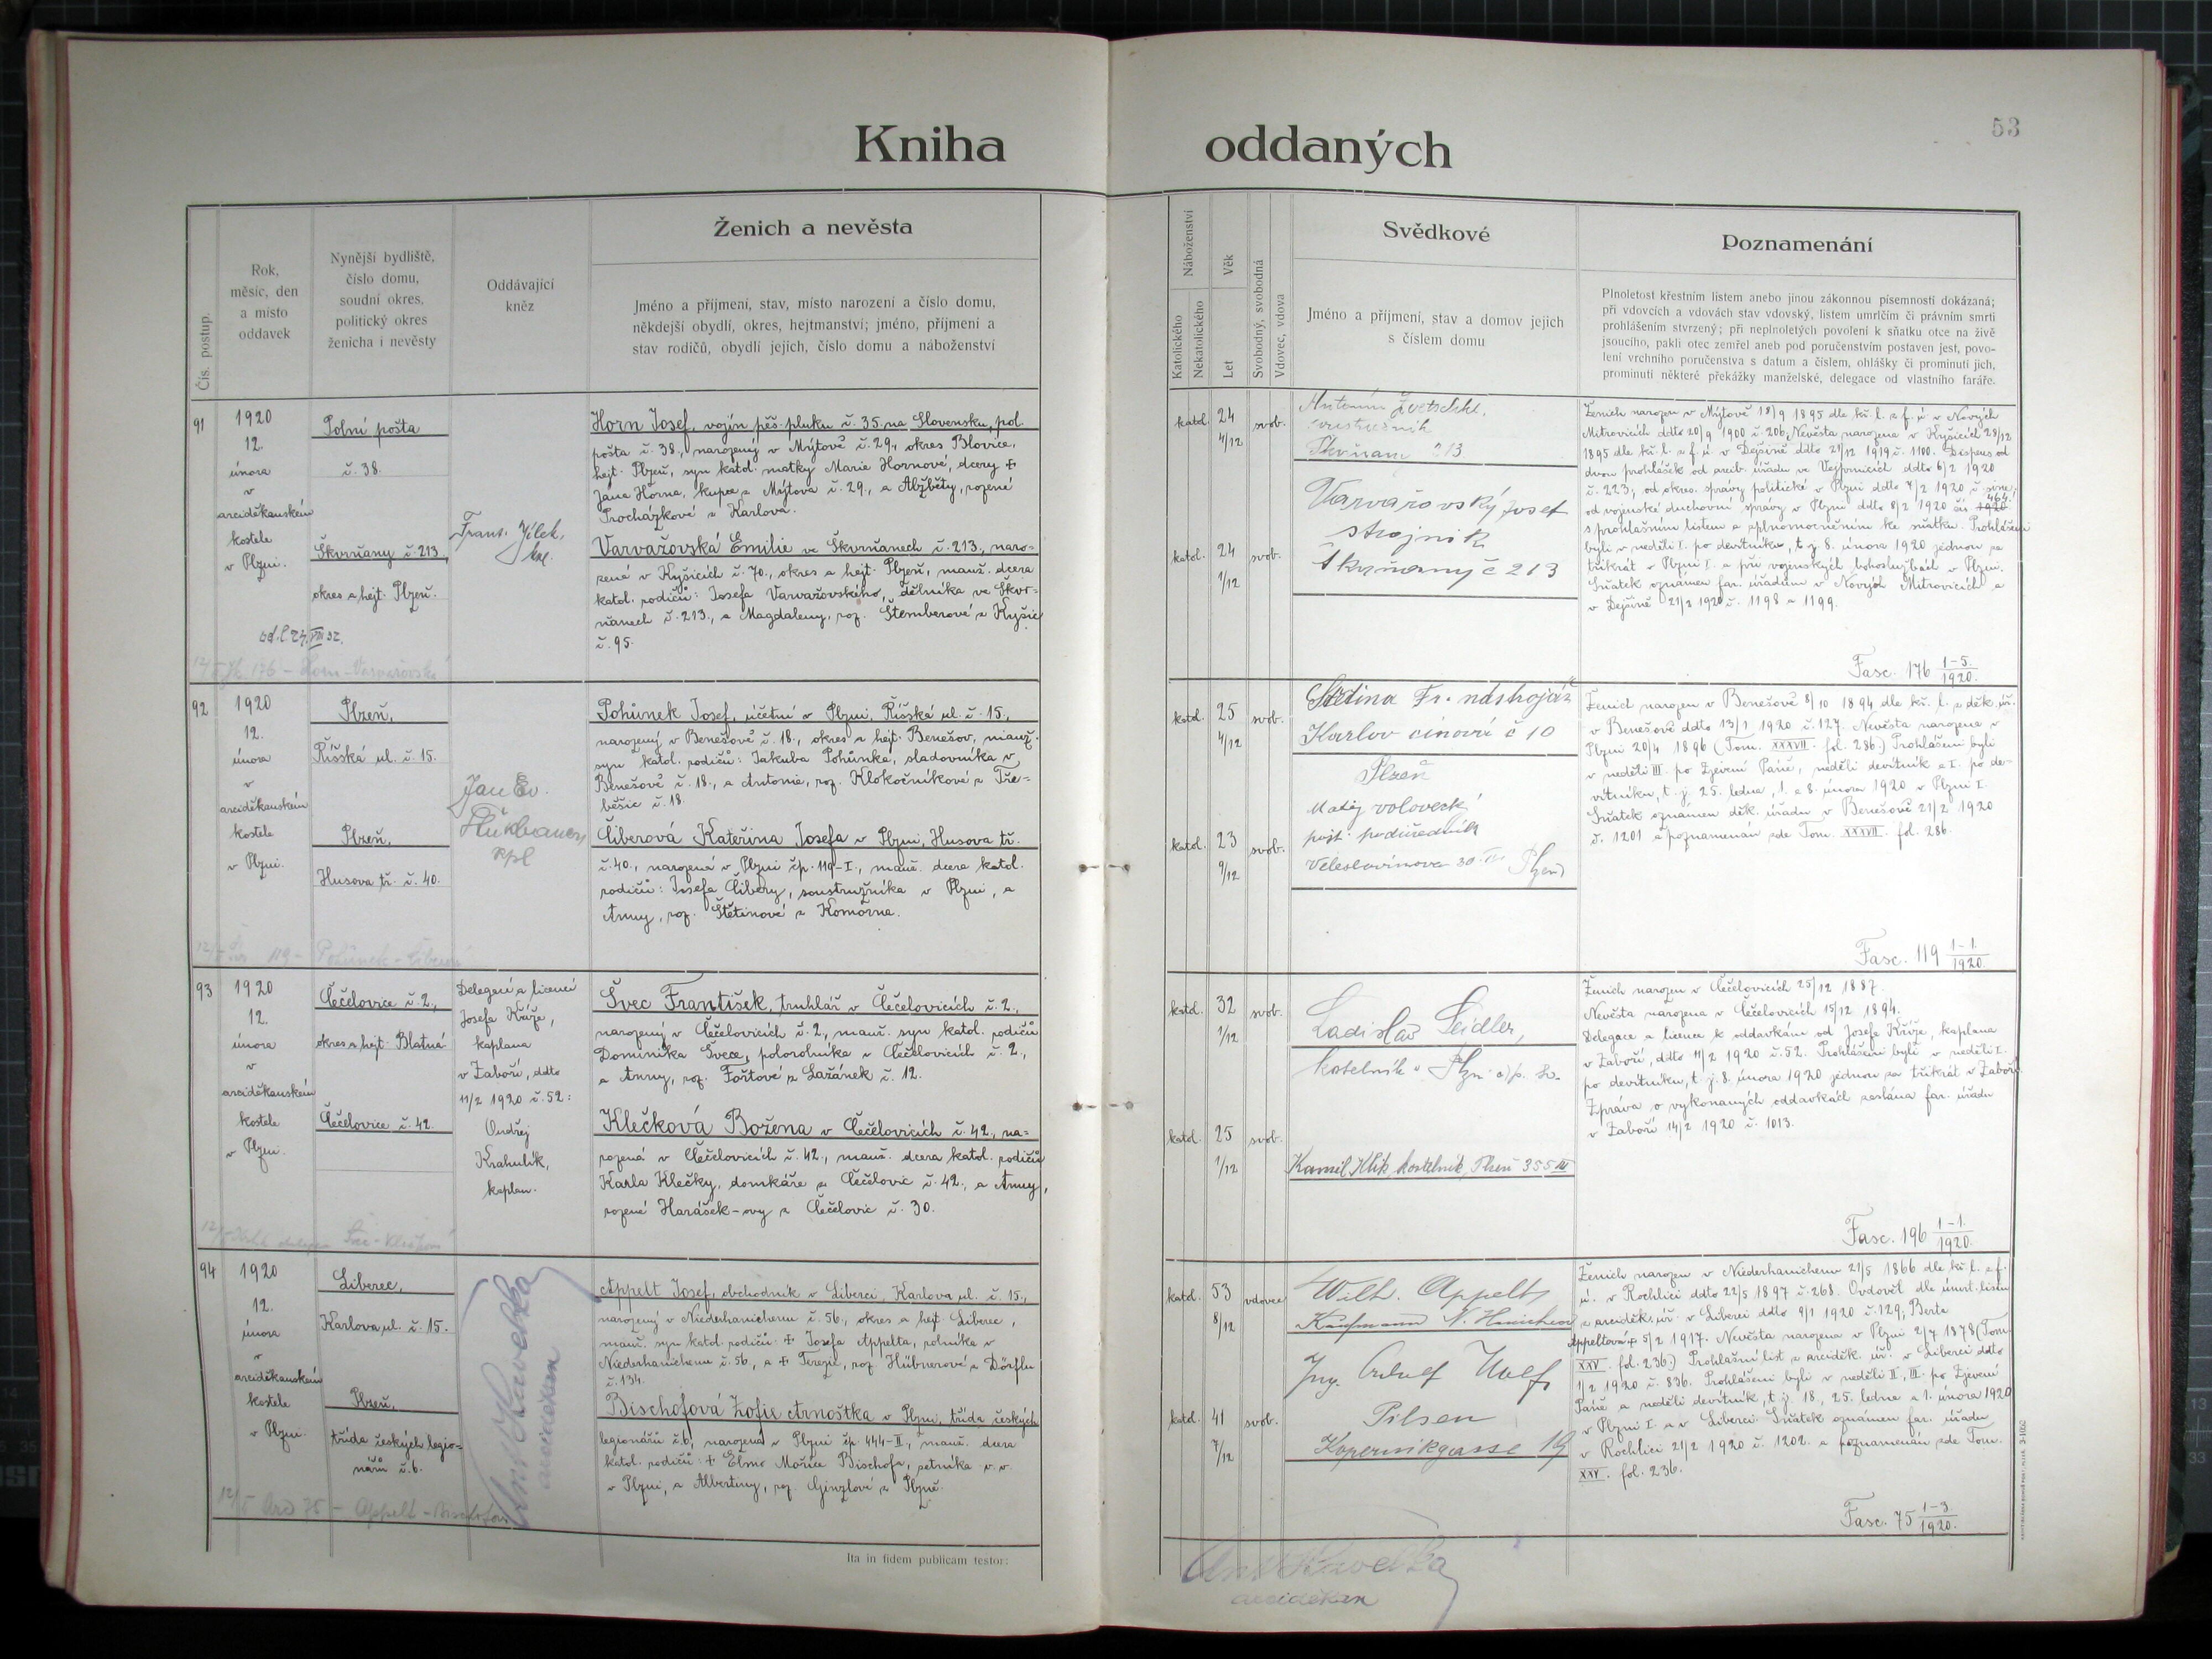 53
Kniha oddaných
Čís. postup.
Rok,
měsíc, den
a místo
oddavek
Nynější bydliště,
číslo domu,
soudní okres,
politický okres
ženicha i nevěsty
Oddávající
kněz
Ženich a nevěsta
Jméno a příjmení, stav, místo narození a číslo domu,
někdejší obydlí, okres, hejtmanství; jméno, příjmení a
stav rodičů, obydlí jejich, číslo domu a náboženství
Náboženství
Katolického
Nekatolického
Věk
Let
Svobodný, svobodná
Vdovec, vdova
Svědkové
Jméno a příjmení, stav a domov jejich
s číslem domu
Poznamenání
Plnoletost křestním listem anebo jinou zákonnou písemností dokázaná;
při vdovcích a vdovách stav vdovský, listem úmrlčím či právním smrti
prohlášením stvrzený; při neplnoletých povolení k sňatku otce na živě
jsoucího, pakli otec zemřel aneb pod poručenstvím postaven jest, povo-
lení vrchního poručenstva s datum a číslem, ohlášky či prominutí jich,
prominutí některé překážky manželské, delegace od vlastního faráře.
91
1920
12.
února
v
arciděkanském
kostele
v Plzni.
Polní pošta
č. 38.
Škvrňany č. 213,
okres a hejt. Plzeň.
Frant. Jílek,
Horn Josef, vojín pěš. pluku č. 35. na Slovensku, pol.
pošta č. 38., narozený v Mýtově č. 29., okres Blovice,
hejt. Plzeň, syn katol. matky Marie Hornové, dcery +
Jana Horna, kupce z Mýtova č. 29., a Alžběty, rozené
Procházkové z Karlova.
Varvažovská Emilie ve Škvrňanech č. 213., naro-
zená v Kyšicích č. 70., okres a hejt. Plzeň, manž. dcera
katol. rodičů: Josefa Varvažovského, dělníka ve Škvr-
ňanech č. 213., a Magdaleny, roz. Štemberové z Kyšic
č. 95.
katol. 24 4/12 svob.
katol. 24 1/12 svob.
Antonín
213
Varvařovský Josef
strojník
Škvrňany č 213
Ženich narozen v Mýtově 18/9 1895 dle kř. l. z f. ú. v Nových
Mitrovicích ddto 20/9 1900 č. 206, Nevěsta narozena v Kyšicích 28/12
1895 dle kř. l. z f. ú. v Dejšině ddto 21/12 1919 č. 1100. Dispens od
dvou prohlášek od arcib. úřadu ve Vejprnicích ddto 6/2 1920
č. 223, od okres. správy politické v Plzni ddto 7/2 1920 č.
od vojenské duchovní správy v Plzni ddto 8/2 1920 čís. 464.
s prohlašním listem a zplnomocněním ke sňatku. Prohlášeni
byli v neděli I. po devítníku, t. j. 8. února 1920 jednou za
třikrát v Plzni I. a při vojenských bohoslužbách v Plzni.
Sňatek oznámen far. úřadům v Nových Mitrovicích a
v Dejšině 21/2 1920 č. 1198 a 1199.
Fasc. 176 1-5./1920.
92
1920
12.
února
v
arciděkanském
kostele
v Plzni.
Plzeň,
Říšská ul. č. 15.
Plzeň,
Husova tř. č. 40.
Jan Ev.
kpl
Pohůnek Josef, účetní v Plzni, Říšská ul. č. 15.,
narozený v Benešově č. 18., okres a hejt. Benešov, manž.
syn katol. rodičů: Jakuba Pohůnka, sladovníka v
Benešově č. 18., a Antonie, roz. Klokočníkové z Tře-
běšic č. 18.
Čiberová Kateřina Josefa v Plzni, Husova tř.
č. 40., narozená v Plzni čp. 119-I., manž. dcera katol.
rodičů: Josefa Čibery, soustružníka v Plzni, a
Anny, roz. Štětinové z Komorna.
katol. 25 4/12 svob.
katol. 23 9/12 svob.
Štětina Fr. nástrojář
Karlov činová č 10
Plzeň
Matěj
Veleslavínova 30 Plzeň
Ženich narozen v Benešově 8/10 1894 dle kř. l. z děk. úř.
v Benešově ddto 13/1 1920 č. 127. Nevěsta narozena v
Plzni 20/4 1896 (Tom. XXXVII. fol. 286.) Prohlášeni byli
v neděli III. po Zjevení Páně, neděli devítník a I. po de-
vítníku, t. j. 25. ledna, 1. a 8. února 1920 v Plzni I.
Sňatek oznámen děk. úřadu v Benešově 21/2 1920
č. 1201 a poznamenán zde Tom. XXXVII. fol. 286.
Fasc. 119 1-1./1920.
93
1920
12.
února
v
arciděkanském
kostele
v Plzni.
Čečelovice č. 2.,
okres a hejt. Blatná
Čečelovice č. 42.
Delegací a licencí
Josefa Kříže,
kaplana
v Záboří, ddto
11/2 1920 č. 52:
Ondřej
Krahulík,
kaplan.
Švec František, truhlář v Čečelovicích č. 2.,
narozený v Čečelovicích č. 2., manž. syn katol. rodičů
Dominika Švece, polorolníka v Čečelovicích č. 2.,
a Anny, roz. Foštové z Lažánek č. 12.
Klečková Božena v Čečelovicích č. 42., na-
rozená v Čečelovicích č. 42., manž. dcera katol. rodičů
Karla Klečky, domkáře z Čečelovic č. 42., a Anny,
rozené Harášek-ovy z Čečelovic č. 30.
katol. 32 1/12 svob.
katol. 25 1/12 svob.
Ladislav Seidler,
kostelník v Plzni
Kamil Klik, kostelník, Plzeň 355 III
Ženich narozen v Čečelovicích 25/12 1887.
Nevěsta narozena v Čečelovicích 15/12 1894.
Delegace a licence k oddavkám od Josefa Kříže, kaplana
v Záboří, ddto 11/2 1920 č. 52. Prohlášeni byli v neděli I.
po devítníku, t. j. 8. února 1920 jednou za třikrát v Záboří.
Zpráva o vykonaných oddavkách zaslána far. úřadu
v Záboří 14/2 1920 č. 1013.
Fasc. 196 1-1./1920.
94
1920
12.
února
v
arciděkanském
kostele
v Plzni.
Liberec,
Karlova ul. č. 15.
Plzeň,
třída českých legio-
nářů č. 6.
Ant. Havelka
arciděkan
Appelt Josef, obchodník v Liberci, Karlova ul. č. 15.,
narozený v Niederhanichenu č. 56., okres a hejt. Liberec,
manž. syn katol. rodičů: + Josefa Appelta, rolníka v
Niederhanichenu č. 56, a + Terezie, roz. Hübnerové z Dörflu
č. 134.
Bischofová Žofie Arnoštka v Plzni, třída českých
legionářů č. 6., narozená v Plzni čp. 444-II., manž. dcera
katol. rodičů: + Elmo Mořice Bischofa, setníka v. v.
v Plzni, a Albertiny, roz. Ginzlové z Plzně.
katol. 53 8/12 vdovec
katol. 41 7/12 svob.
Wilh. Appelt
Kaufmann N. Hanichen
Ing. Wolf
Pilsen
Kopernikgasse 19
Ženich narozen v Niederhanichenu 21/5 1866 dle kř. l. z f.
ú. v Rochlici ddto 22/5 1897 č. 268. Ovdověl dle úmrt. listu
z arciděk. úř. v Liberci ddto 9/1 1920 č. 129, Berta
Appeltová + 5/2 1917. Nevěsta narozena v Plzni 2/7 1878 (Tom.
XXV. fol. 236.) Prohlašní list z arciděk. úř. v Liberci ddto
1/2 1920 č. 836. Prohlášeni byli v neděli II., III. po Zjevení
Páně a neděli devítník, t. j. 18., 25. ledna a 1. února 1920
v Plzni I. a v Liberci. Sňatek oznámen far. úřadu
v Rochlici 21/2 1920 č. 1202. a poznamenán zde Tom.
XXV. fol. 236.
Fasc. 75 1-3./1920.
Ita in fidem publicam testor:
Ant. Havelka
arciděkan